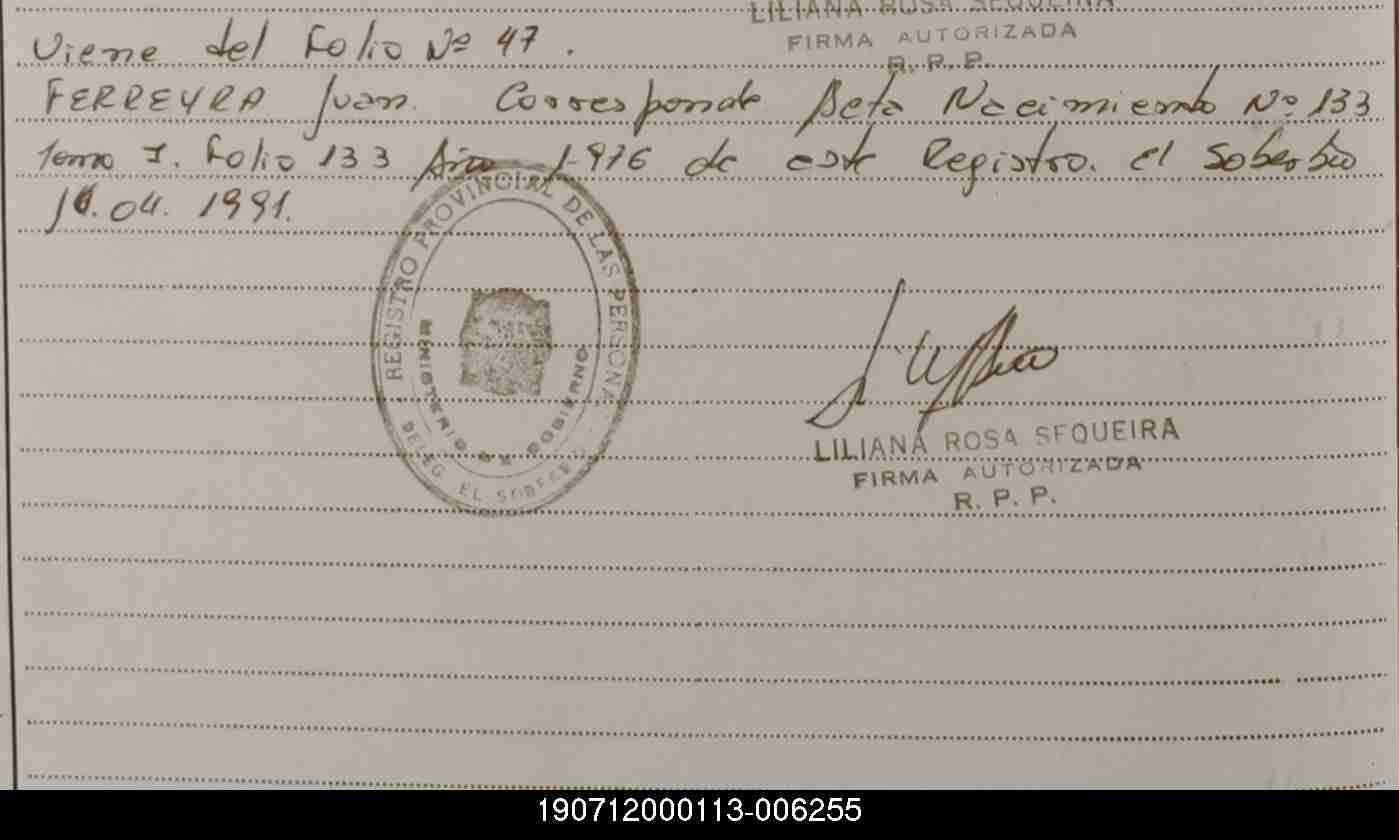 LILIANA ROSA SEQUEIRA
FIRMA AUTORIZADA
R. P. P.
Viene del Folio Nº 47.
FERREYRA Juan. Corresponde Acta Nacimiento Nº 133
Tomo I. Folio 133 Año 1976 de este Registro. El Soberbio
04. 1991.
REGISTRO PROVINCIAL DE LAS PERSONA
MINISTERIO DE GOBIERNO
DELEG EL SOBERBIO
LILIANA ROSA SEQUEIRA
FIRMA AUTORIZADA
R. P. P.
190712000113-006255